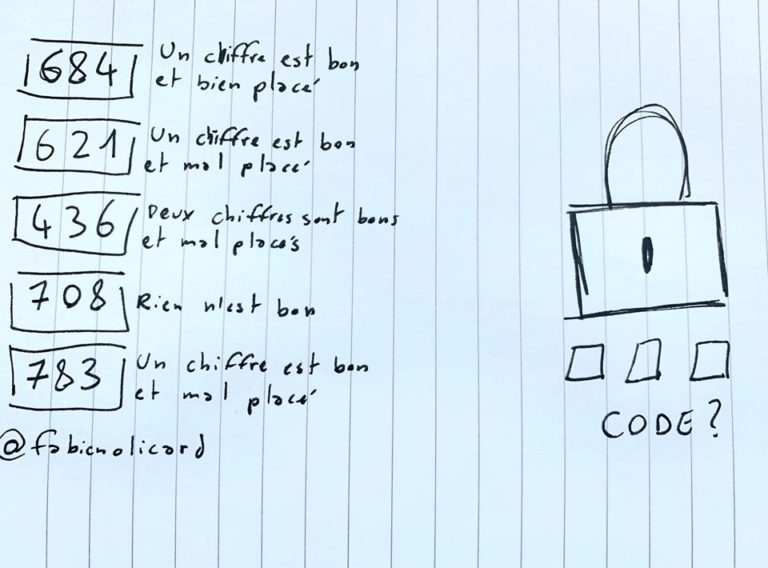 684 Un chiffre est bon
et bien placé
621 Un chiffre est bon
et mal placé
436 Deux chiffres sont bons
et mal placés
708 Rien n'est bon
783 Un chiffre est bon
et mal placé
@fabienolicard
CODE?